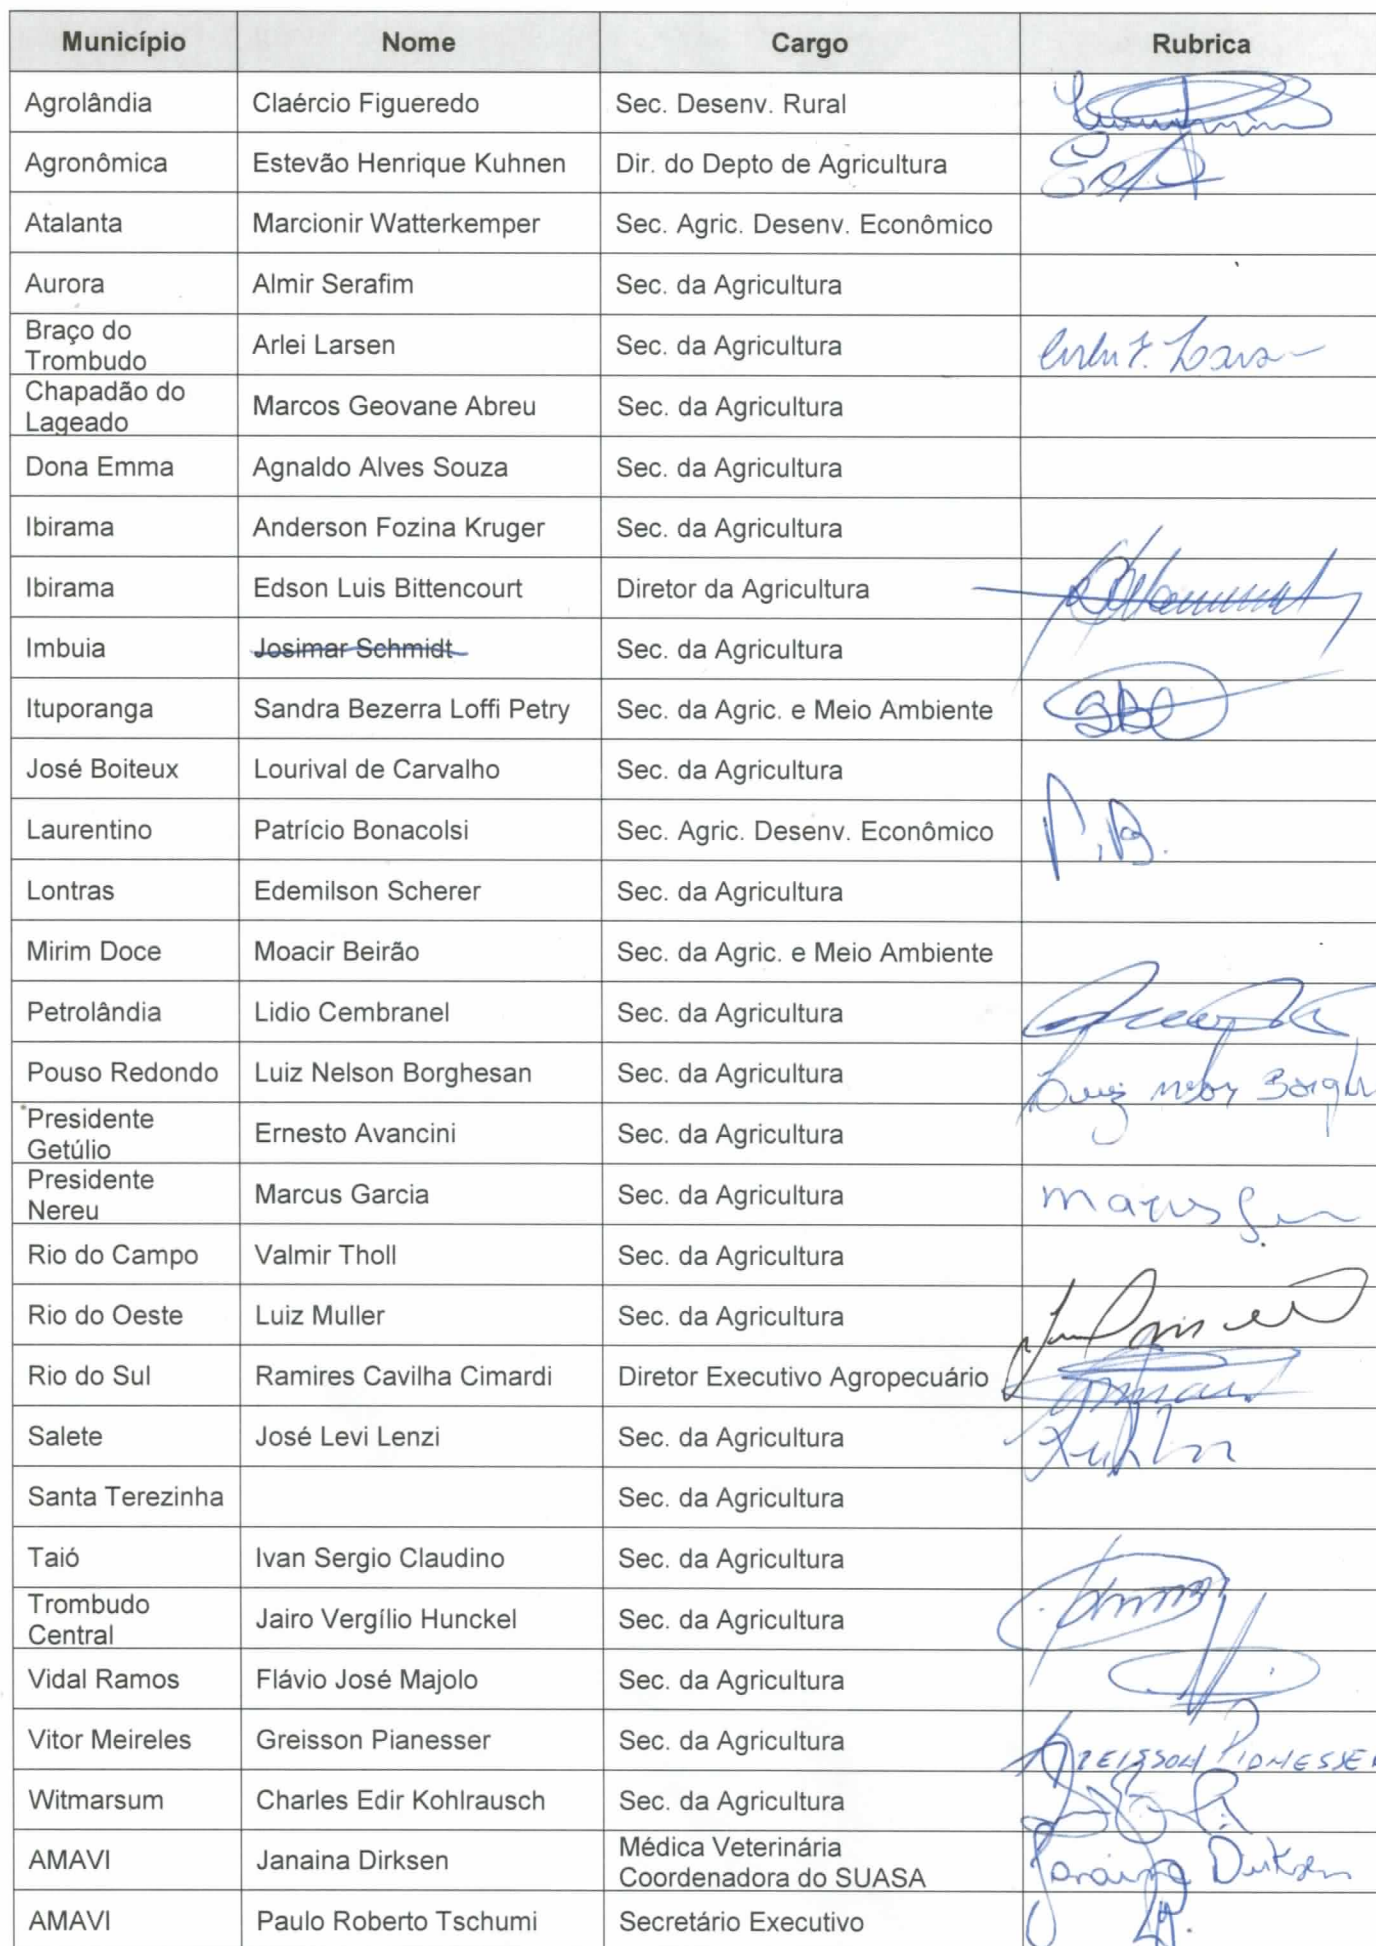 Município Nome Cargo Rubrica
Agrolândia Claércio Figueredo Sec. Desenv. Rural
Agronômica Estevão Henrique Kuhnen Dir. do Depto de Agricultura
Atalanta Marcionir Watterkemper Sec. Agric. Desenv. Econômico
Aurora Almir Serafim Sec. da Agricultura
Braço do
Trombudo Arlei Larsen Sec. da Agricultura
Chapadão do
Lageado Marcos Geovane Abreu Sec. da Agricultura
Dona Emma Agnaldo Alves Souza Sec. da Agricultura
Ibirama Anderson Fozina Kruger Sec. da Agricultura
Ibirama Edson Luis Bittencourt Diretor da Agricultura
Imbuia Josimar Schmidt Sec. da Agricultura
Ituporanga Sandra Bezerra Loffi Petry Sec. da Agric. e Meio Ambiente
José Boiteux Lourival de Carvalho Sec. da Agricultura
Laurentino Patrício Bonacolsi Sec. Agric. Desenv. Econômico P.B.
Lontras Edemilson Scherer Sec. da Agricultura
Mirim Doce Moacir Beirão Sec. da Agric. e Meio Ambiente
Petrolândia Lidio Cembranel Sec. da Agricultura
Pouso Redondo Luiz Nelson Borghesan Sec. da Agricultura Luiz
Presidente
Getúlio Ernesto Avancini Sec. da Agricultura
Presidente
Nereu Marcus Garcia Sec. da Agricultura Marcus
Rio do Campo Valmir Tholl Sec. da Agricultura
Rio do Oeste Luiz Muller Sec. da Agricultura
Rio do Sul Ramires Cavilha Cimardi Diretor Executivo Agropecuário
Salete José Levi Lenzi Sec. da Agricultura
Santa Terezinha Sec. da Agricultura
Taió Ivan Sergio Claudino Sec. da Agricultura
Trombudo
Central Jairo Vergílio Hunckel Sec. da Agricultura
Vidal Ramos Flávio José Majolo Sec. da Agricultura
Vitor Meireles Greisson Pianesser Sec. da Agricultura GREISSON PIANESSER
Witmarsum Charles Edir Kohlrausch Sec. da Agricultura
AMAVI Janaina Dirksen Médica Veterinária
Coordenadora do SUASA Janaina Dirksen
AMAVI Paulo Roberto Tschumi Secretário Executivo